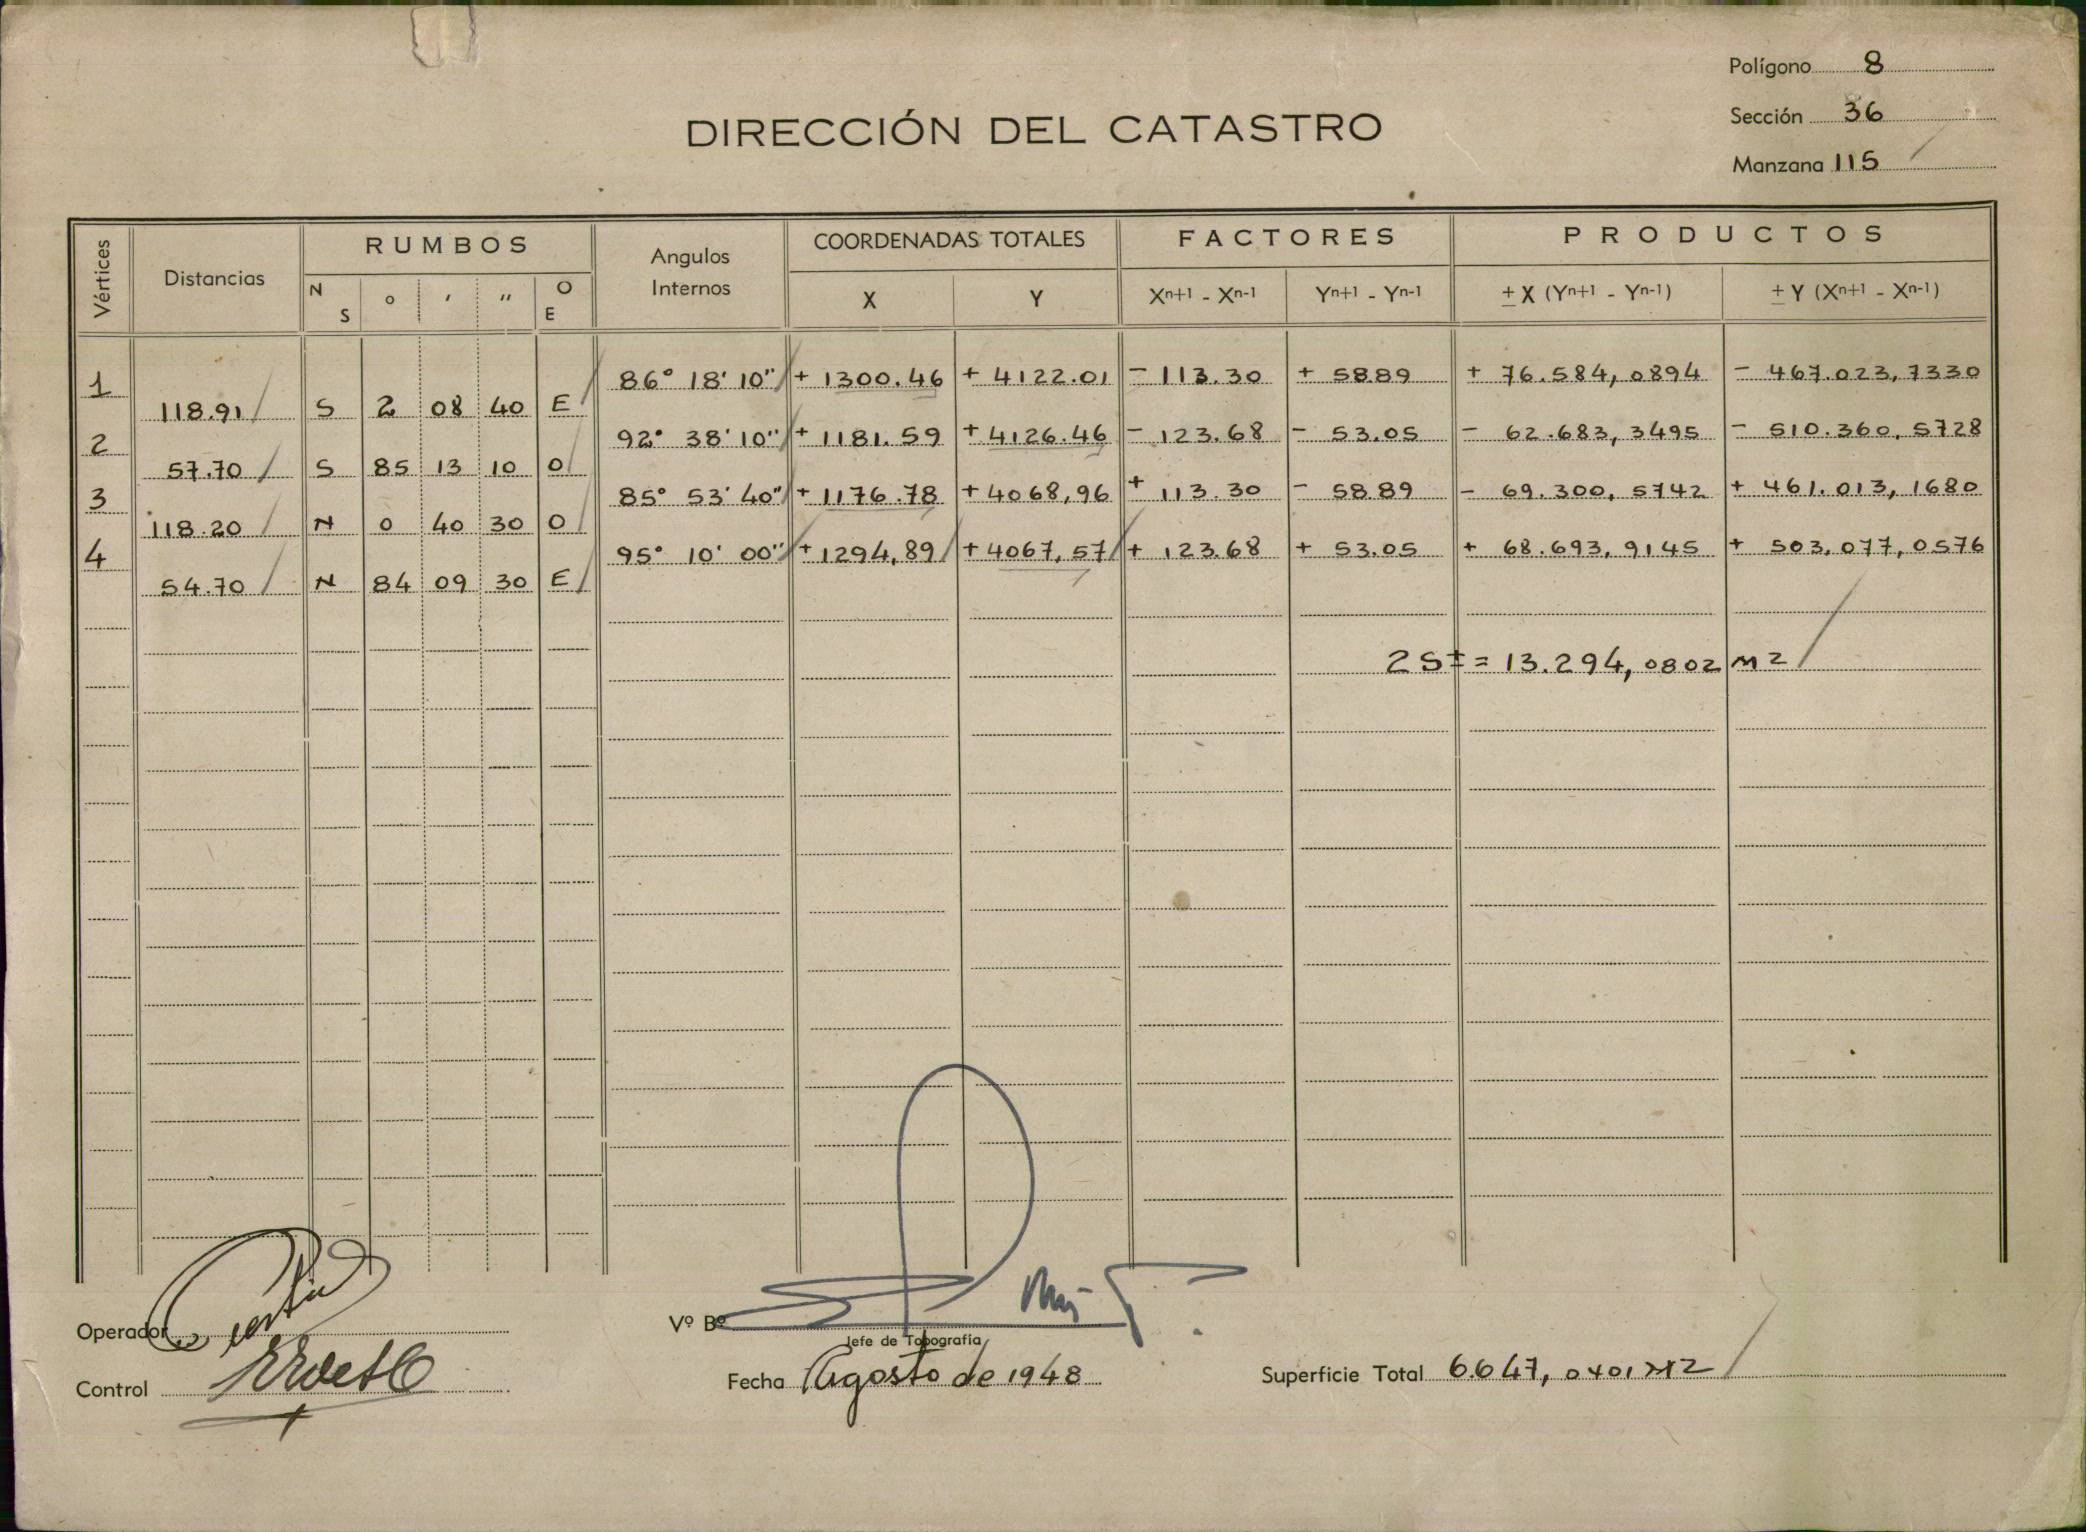 Polígono 8
Sección 36
Manzana 115
DIRECCIÓN DEL CATASTRO
Vértices Distancias RUMBOS Angulos Internos COORDENADAS TOTALES FACTORES PRODUCTOS
N S ° ' '' O E X Y Xn+1 - Xn-1 Yn+1 - Yn-1 ± X (Yn+1 - Yn-1) ± Y (Xn+1 - Xn-1)
1 86° 18' 10'' + 1300.46 + 4122.01 - 113.30 + 58.89 + 76.584,0894 - 467.023,7330
118.91 S 2 08 40 E
2 92° 38' 10'' + 1181.59 + 4126.46 - 123.68 - 53.05 - 62.683,3495 - 510.360,5728
57.70 S 85 13 10 O
3 85° 53' 40'' + 1176.78 + 4068,96 + 113.30 - 58.89 - 69.300,5742 + 461.013,1680
118.20 N 0 40 30 O
4 95° 10' 00'' + 1294,89 + 4067,57 + 123.68 + 53.05 + 68.693,9145 + 503,077,0576
54.70 N 84 09 30 E
2 S ± = 13.294,0802 m2
Operador
Vº Bº
Jefe de Topografía
Control
Fecha Agosto de 1948
Superficie Total 6.647,0401 M2